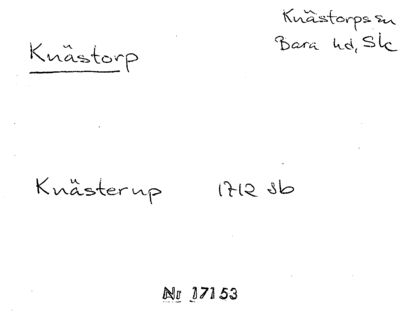 Knästorps sn
Bara hd, Sk
Knästorp
Knästerup 1712 Jb
Nr 17153